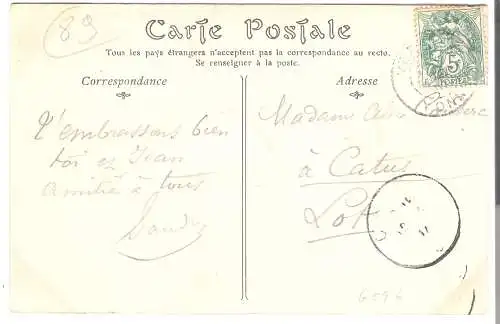 89
Carte Postale
Tous les pays étrangers n'acceptent pas la correspondance au recto.
Se renseigner à la poste.
Correspondance
Adresse
5
T'embrassons bien
toi et Jean
Amitié à tous
Madame
à Catus
Lot
6596